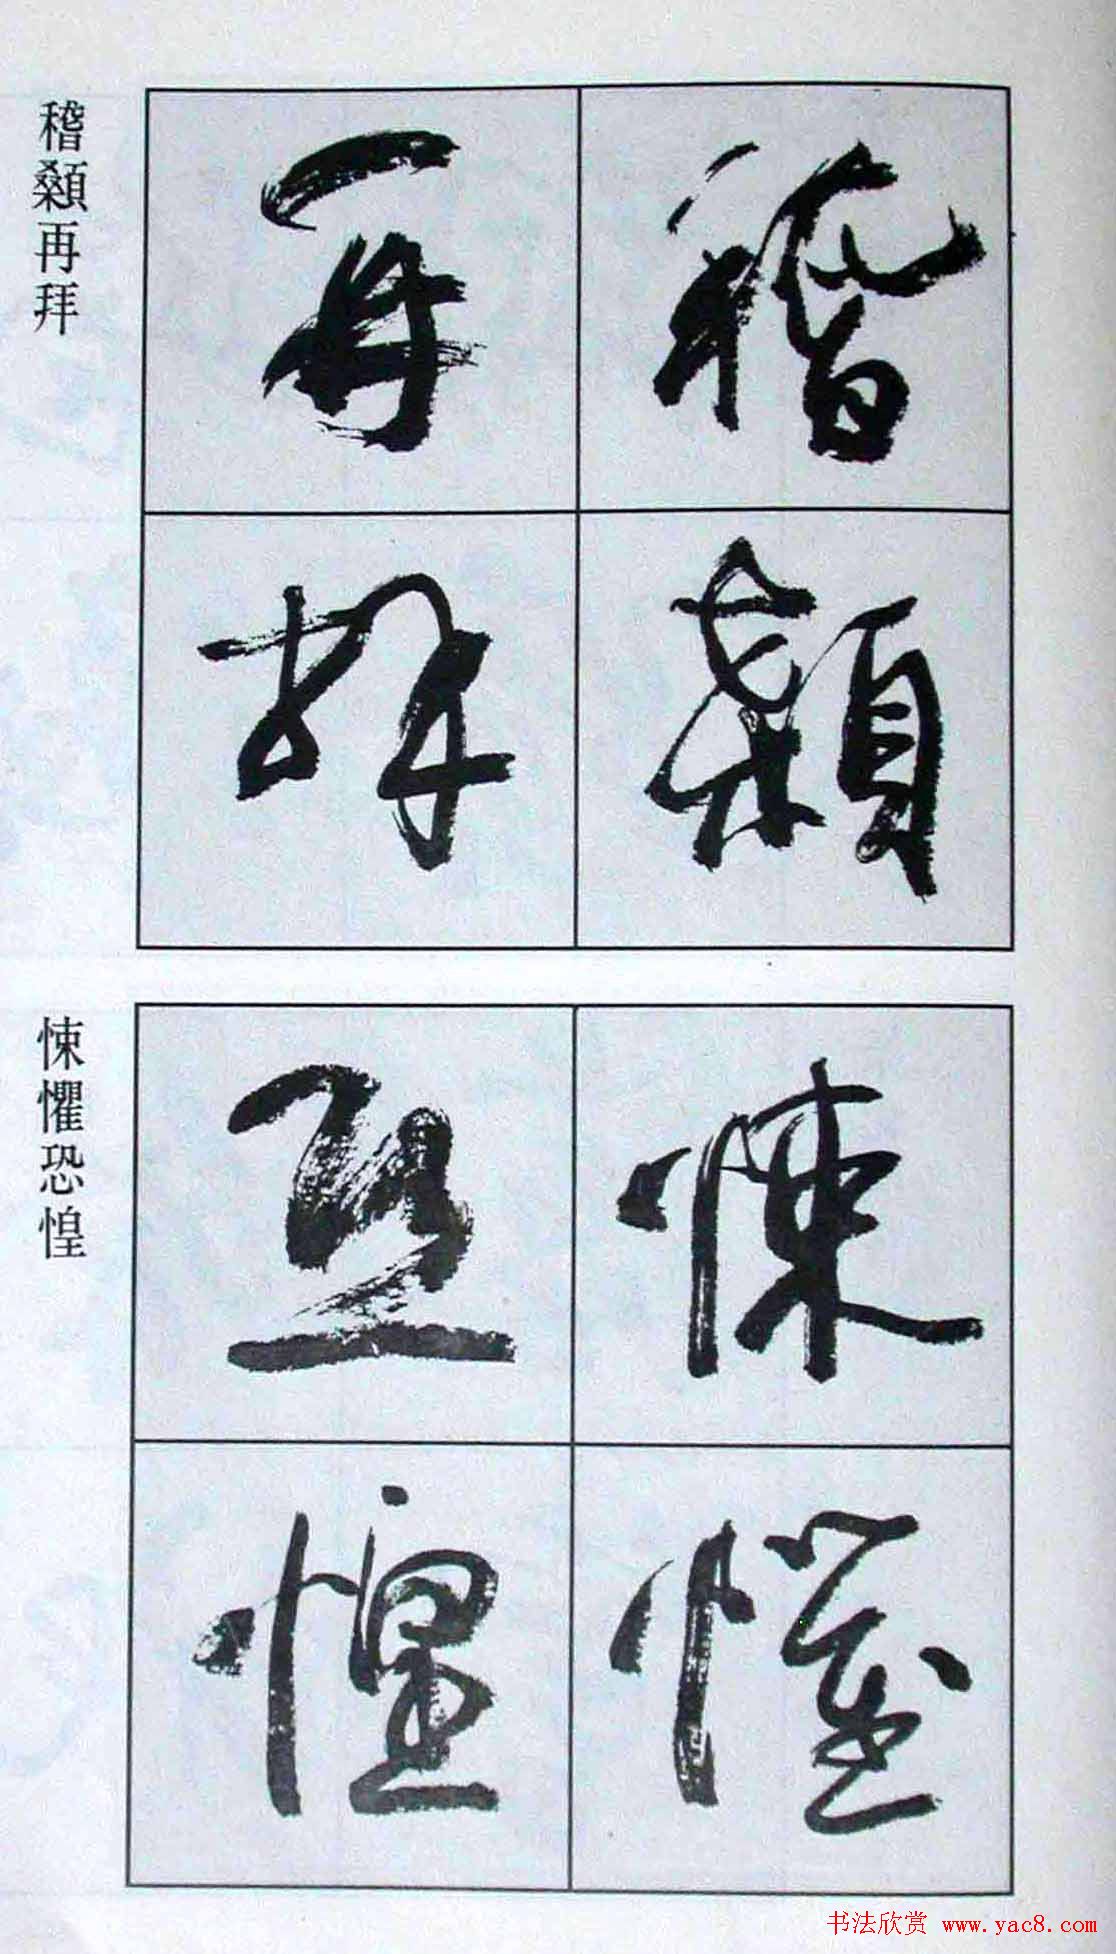 稽顙再拜
稽顙
再拜
悚懼恐惶
悚懼
恐惶
书法欣赏 www.yac8.com